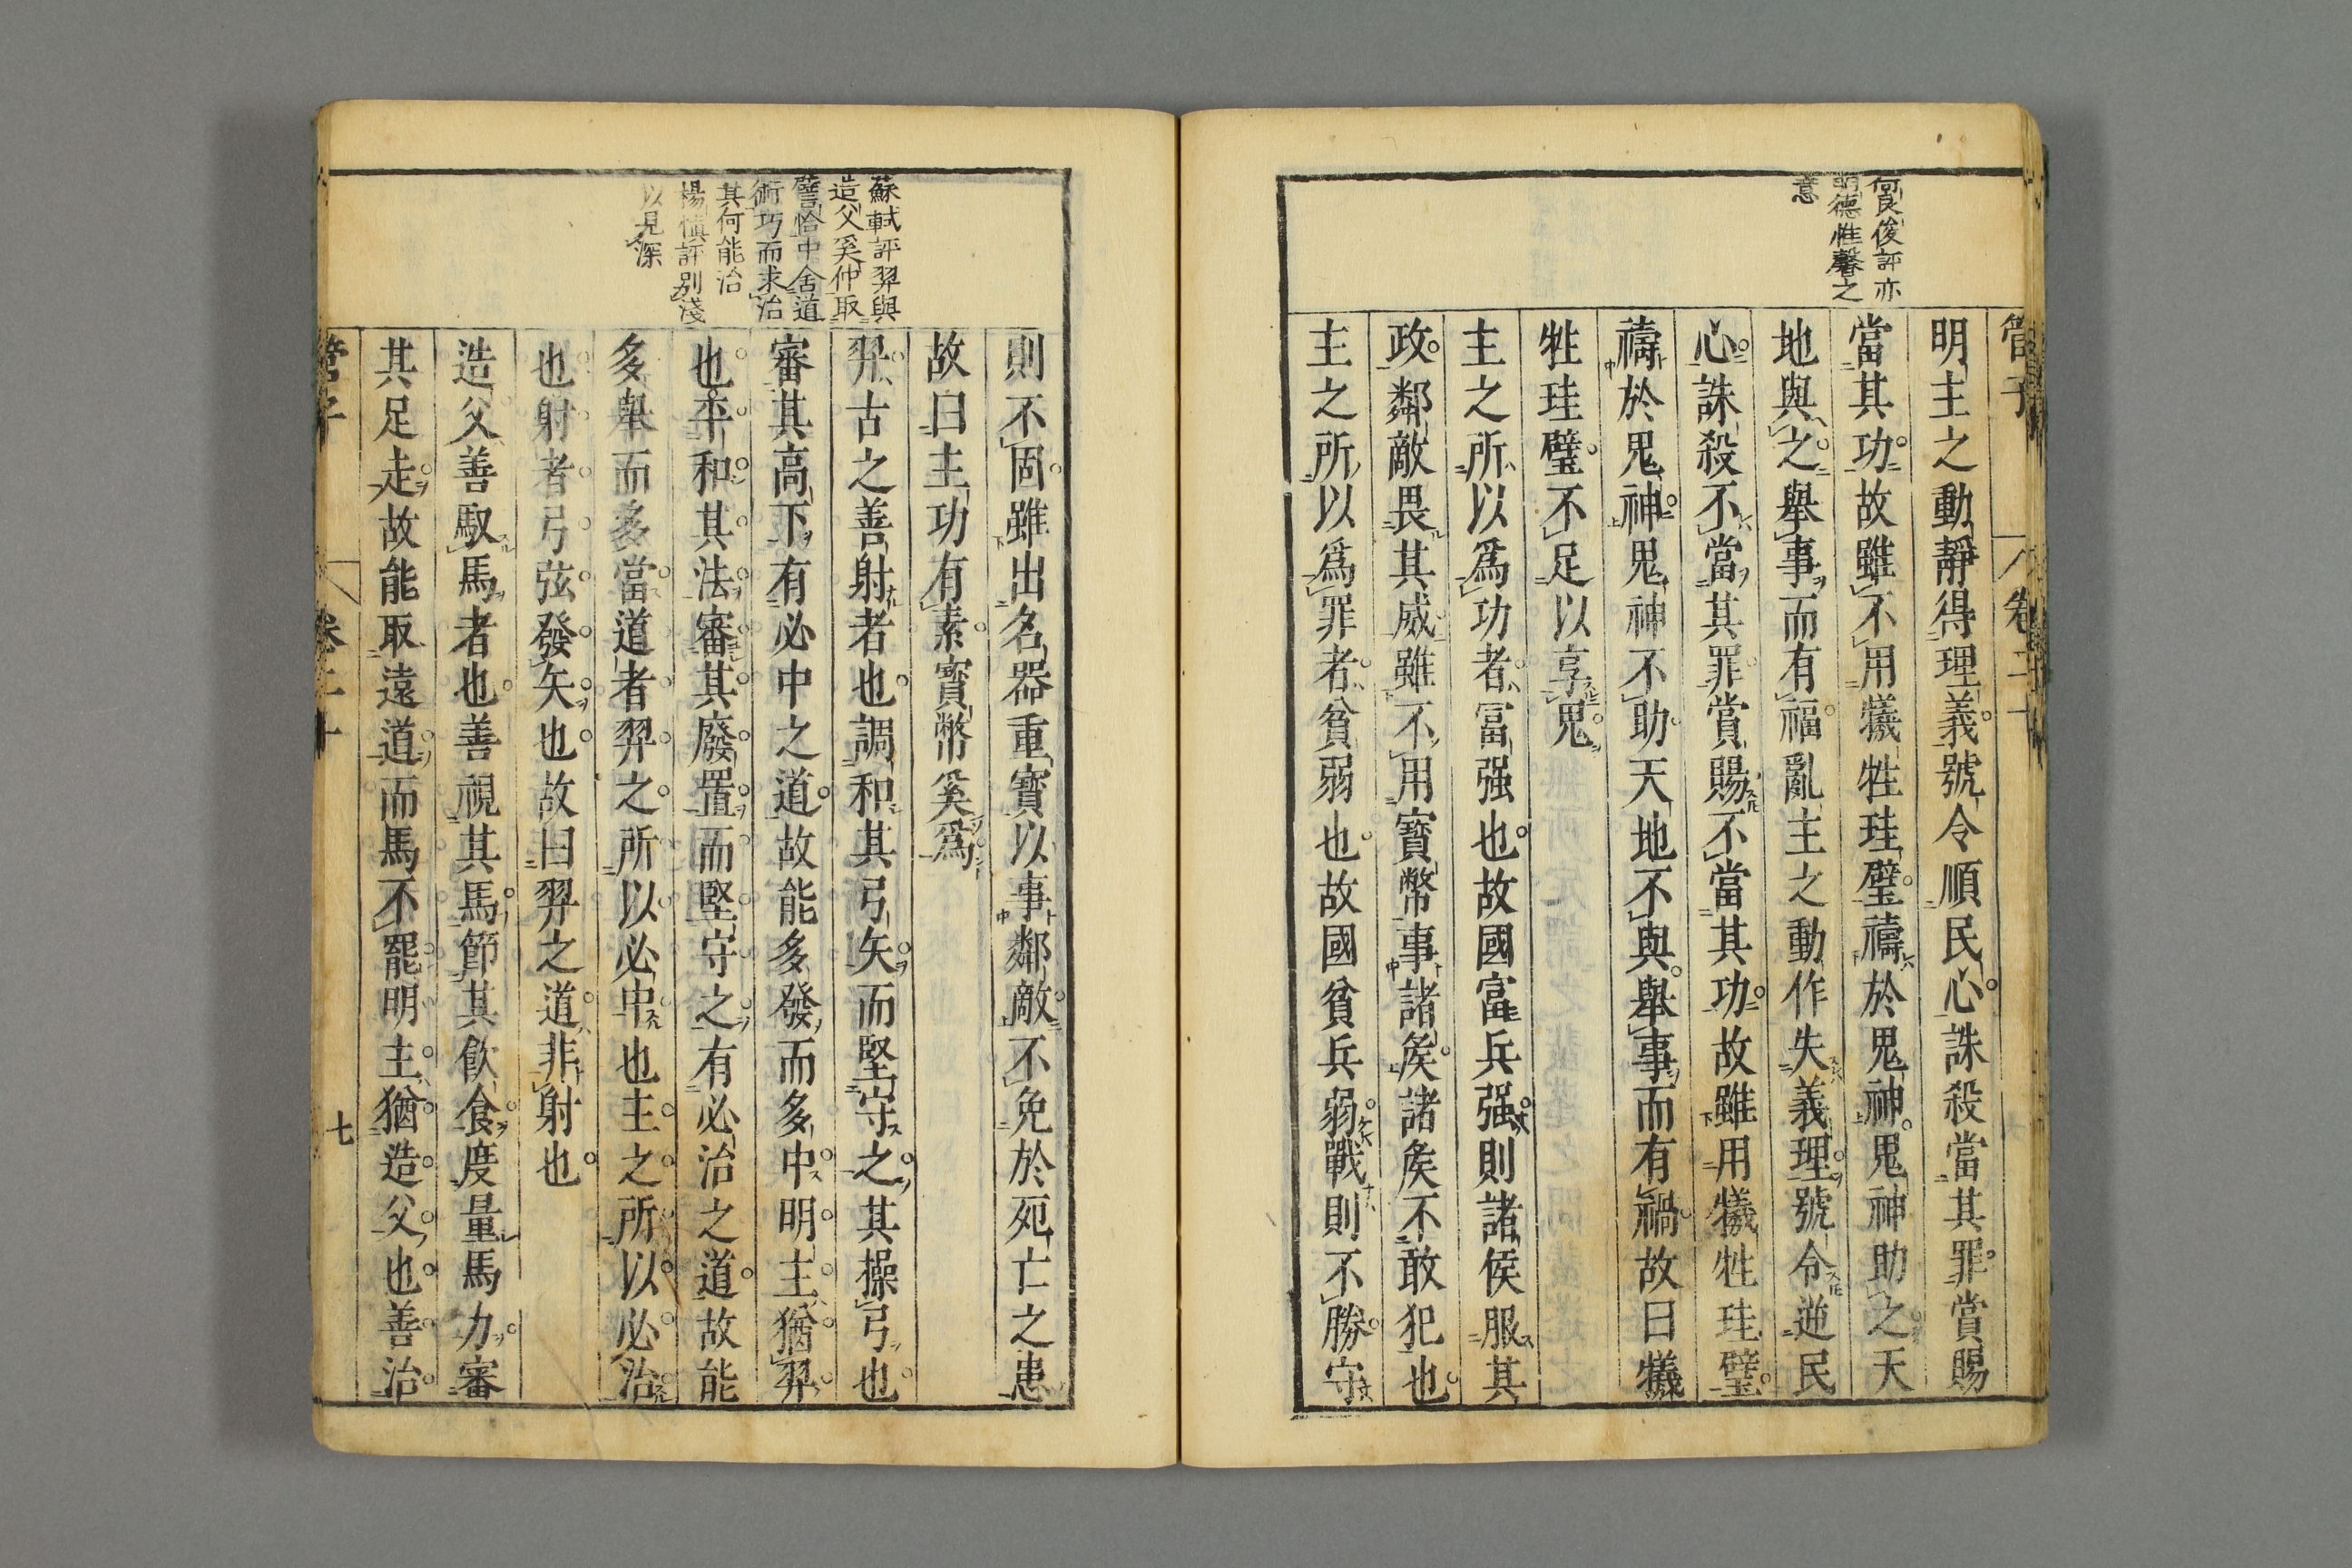 何良俊評亦
明德惟馨之
意
管子
卷二十
明主之動靜得理義號令順民心誅殺當其罪賞賜
當其功故雖不用犧牲珪璧禱於鬼神鬼神助之天
地與之舉事而有福亂主之動作失義理號令逆民
心誅殺不當其罪賞賜不當其功故雖用犧牲珪璧
禱於鬼神鬼神不助天地不與舉事而有禍故曰犧
牲珪璧不足以享鬼
主之所以爲功者冨强也故國富兵强則諸侯服其
政鄰敵畏其威雖不用寶幣事諸矦諸矦不敢犯也
主之所以爲罪者貧弱也故國貧兵弱戰則不勝守
蘇軾評羿與
造父奚仲取
譬恰中舍道
術巧而求治
其何能治
楊慎評別淺
以見深
則不固雖出名器重寶以事鄰敵不免於死亡之患
故曰主功有素寶幣奚爲
羿古之善射者也調和其弓矢而堅守之其操弓也
審其高下有必中之道故能多發而多中明主猶羿
也平和其法審其廢置而堅守之有必治之道故能
多舉而多當道者羿之所以必中也主之所以必治
也射者弓弦發矢也故曰羿之道非射也
造父善馭馬者也善視其馬節其飮食度量馬力審
其足走故能取遠道而馬不罷明主猶造父也善治
管子
卷二十
七